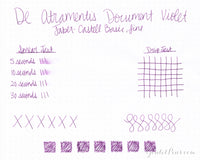 De Atramentis Document Violet
Faber-Castell Basic, fine
Smear Test
Drip Test
5 seconds
10 seconds
20 seconds
30 seconds